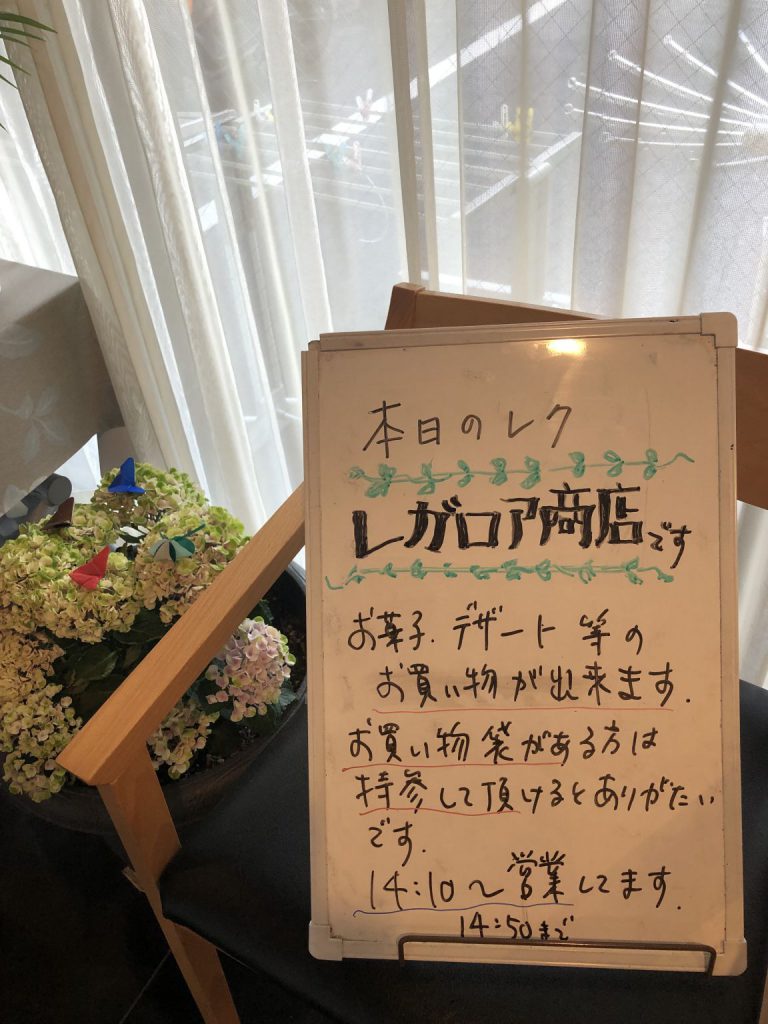 本日のレク
レガロア商店です
お菓子.デザート等の
お買い物が出来ます.
お買い物袋がある方は
持参して頂けるとありがたい
です.
14:10〜営業してます.
14:50まで